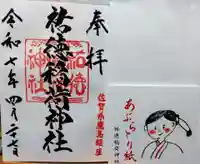 奉拝
祐徳稲荷神社
祐徳神社
佐賀県鹿島鎮座
令和七年四月二十七日
あぶらとり紙
祐徳稲荷神社